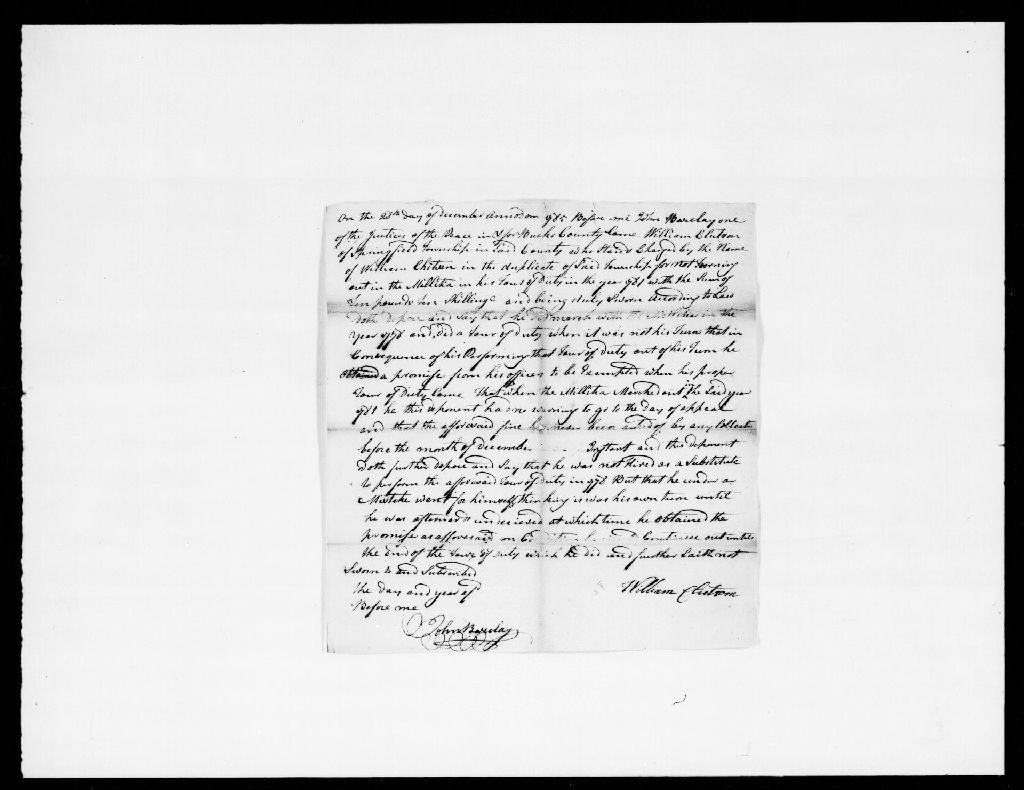 On the 28th day of december annodom 1785 Before me John Barclay one
of the Justices of the Peace in & for Bucks County Came William Chitson
of Springfield Township in Said County who Stands Charged by the Name
of William Chitson in the duplicate of Said Township for not Turning
out in the Millitia in his Tour of Duty in the year 1781 with the Sum of
Ten pounds Ten Shillings and being duly Sworn according to Law
doth depose and Say that he did march with the Millitia in the
Year 1778 and did a Tour of duty when it was not his Turn that in
Consequence of his Performing that Tour of duty out of his Turn he
obtained a promise from his officer to be Exempted when his proper
Tour of Duty Came That when the Millitia Marched in the Said year
1781 he this deponent had no warning to go to the day of appeal
and that the afforesaid fine has never been asked of by any Collector
before the month of december Instant and this deponent
doth further depose and Say that he was not Hired as a Substitute
to perform the afforesaid Tour of duty in 1778 But that he under a
Mistake went for himself thinking it was his own turn until
he was afterwards undeceived at which time he obtained the
promise as afforesaid on Continue out until
the End of the Tour of duty which he did and further Saith not
Sworn to and Subscribed
the day and year of
Before me
William Chitson
John Barclay